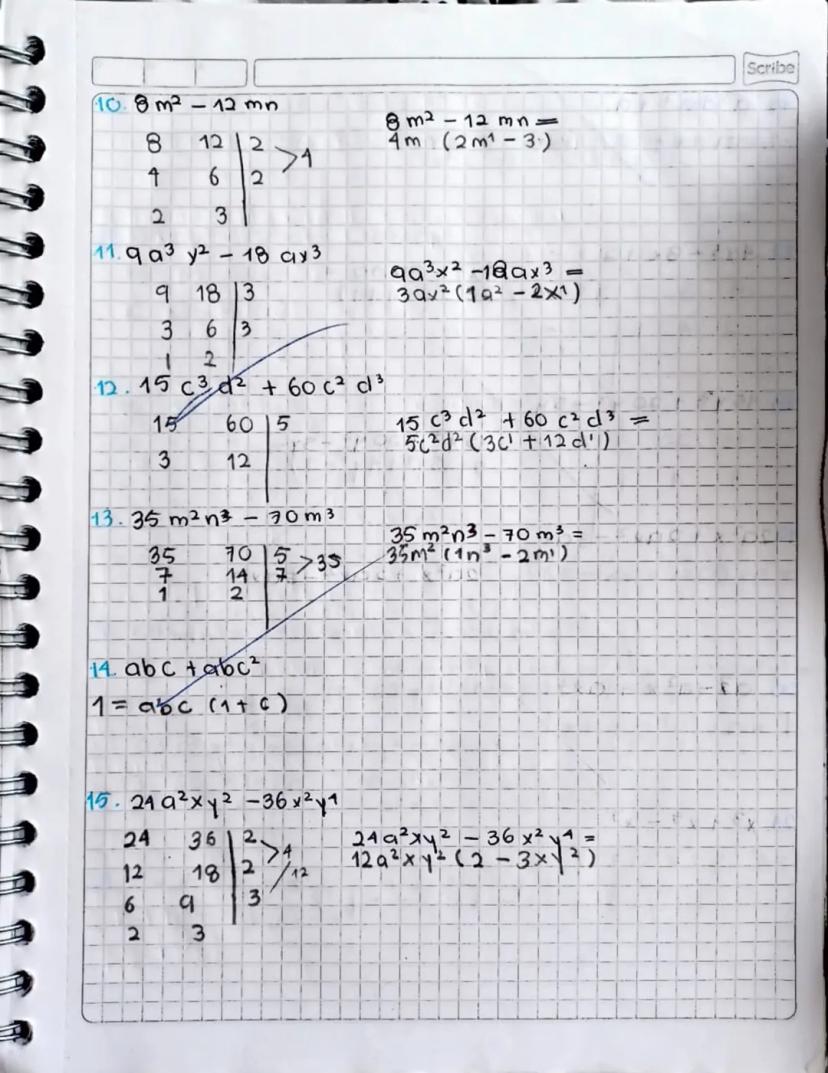 Scribe
10. 8m² - 12mn
8 12 | 2
4 6 | 2 > 4
2 3
8m² - 12mn =
4m (2m¹ - 3)
11. 9a³ y² - 18 ax³
9 18 | 3
3 6 | 3
1 2
9a³x² - 18ax³ =
3ax² (1a² - 2x¹)
12. 15 c³ d² + 60 c² d³
15 60 | 5
3 12
15 c³ d² + 60 c² d³ =
5c²d² (3c¹ + 12d¹)
13. 35 m²n³ - 70m³
35 70 | 5
7 14 | 7 > 35
1 2
35 m²n³ - 70m³ =
35m² (1n³ - 2m¹)
14. abc + abc²
1 = abc (1 + c)
15. 24a²xy² - 36x²y⁴
24 36 | 2
12 18 | 2 > 4
6 9 | 3 / 12
2 3
24a²xy² - 36x²y⁴ =
12a²xy² (2 - 3xy²)